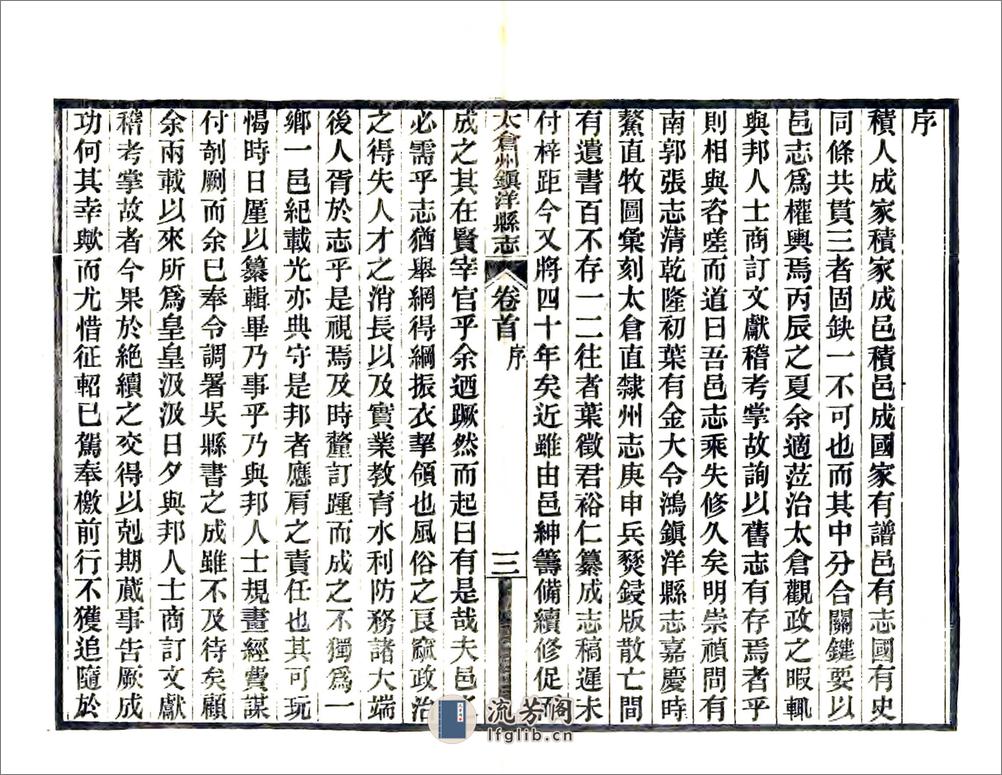 序
積人成家積家成邑積邑成國家有譜邑有志國有史
同條共貫三者固缺一不可也而其中分合關鍵要以
邑志爲權輿焉丙辰之夏余適蒞治太倉觀政之暇輒
與邦人士商訂文獻稽考掌故詢以舊志有存焉者乎
則相與咨嗟而道曰吾邑志乘失修久矣明崇禎間有
南郭張志清乾隆初葉有金大令鴻鎮洋縣志嘉慶時
鰲直牧圖彙刻太倉直隸州志庚申兵燹鋟版散亡間
有遺書百不存一二往者葉徵君裕仁纂成志稿遲未
付梓距今又將四十年矣近雖由邑紳籌備續修促
太倉州鎮洋縣志 卷首 序 三
成之其在賢宰官乎余迺蹶然而起曰有是哉夫邑
必需乎志猶舉網得綱振衣挈領也風俗之良窳政治
之得失人才之消長以及實業教育水利防務諸大端
後人胥於志乎是視焉及時釐訂踵而成之不獨爲一
鄉一邑紀載光亦典守是邦者應肩之責任也其可玩
愒時日厪以纂輯畢乃事乎乃與邦人士規畫經費謀
付剞劂而余已奉令調署吳縣書之成雖不及待矣顧
余兩載以來所爲皇皇汲汲日夕與邦人士商訂文獻
稽考掌故者今果於絶續之交得以剋期蕆事告厥成
功何其幸歟而尤惜征軺已駕奉檄前行不獲追隨於
流芳阁
lfglib.cn